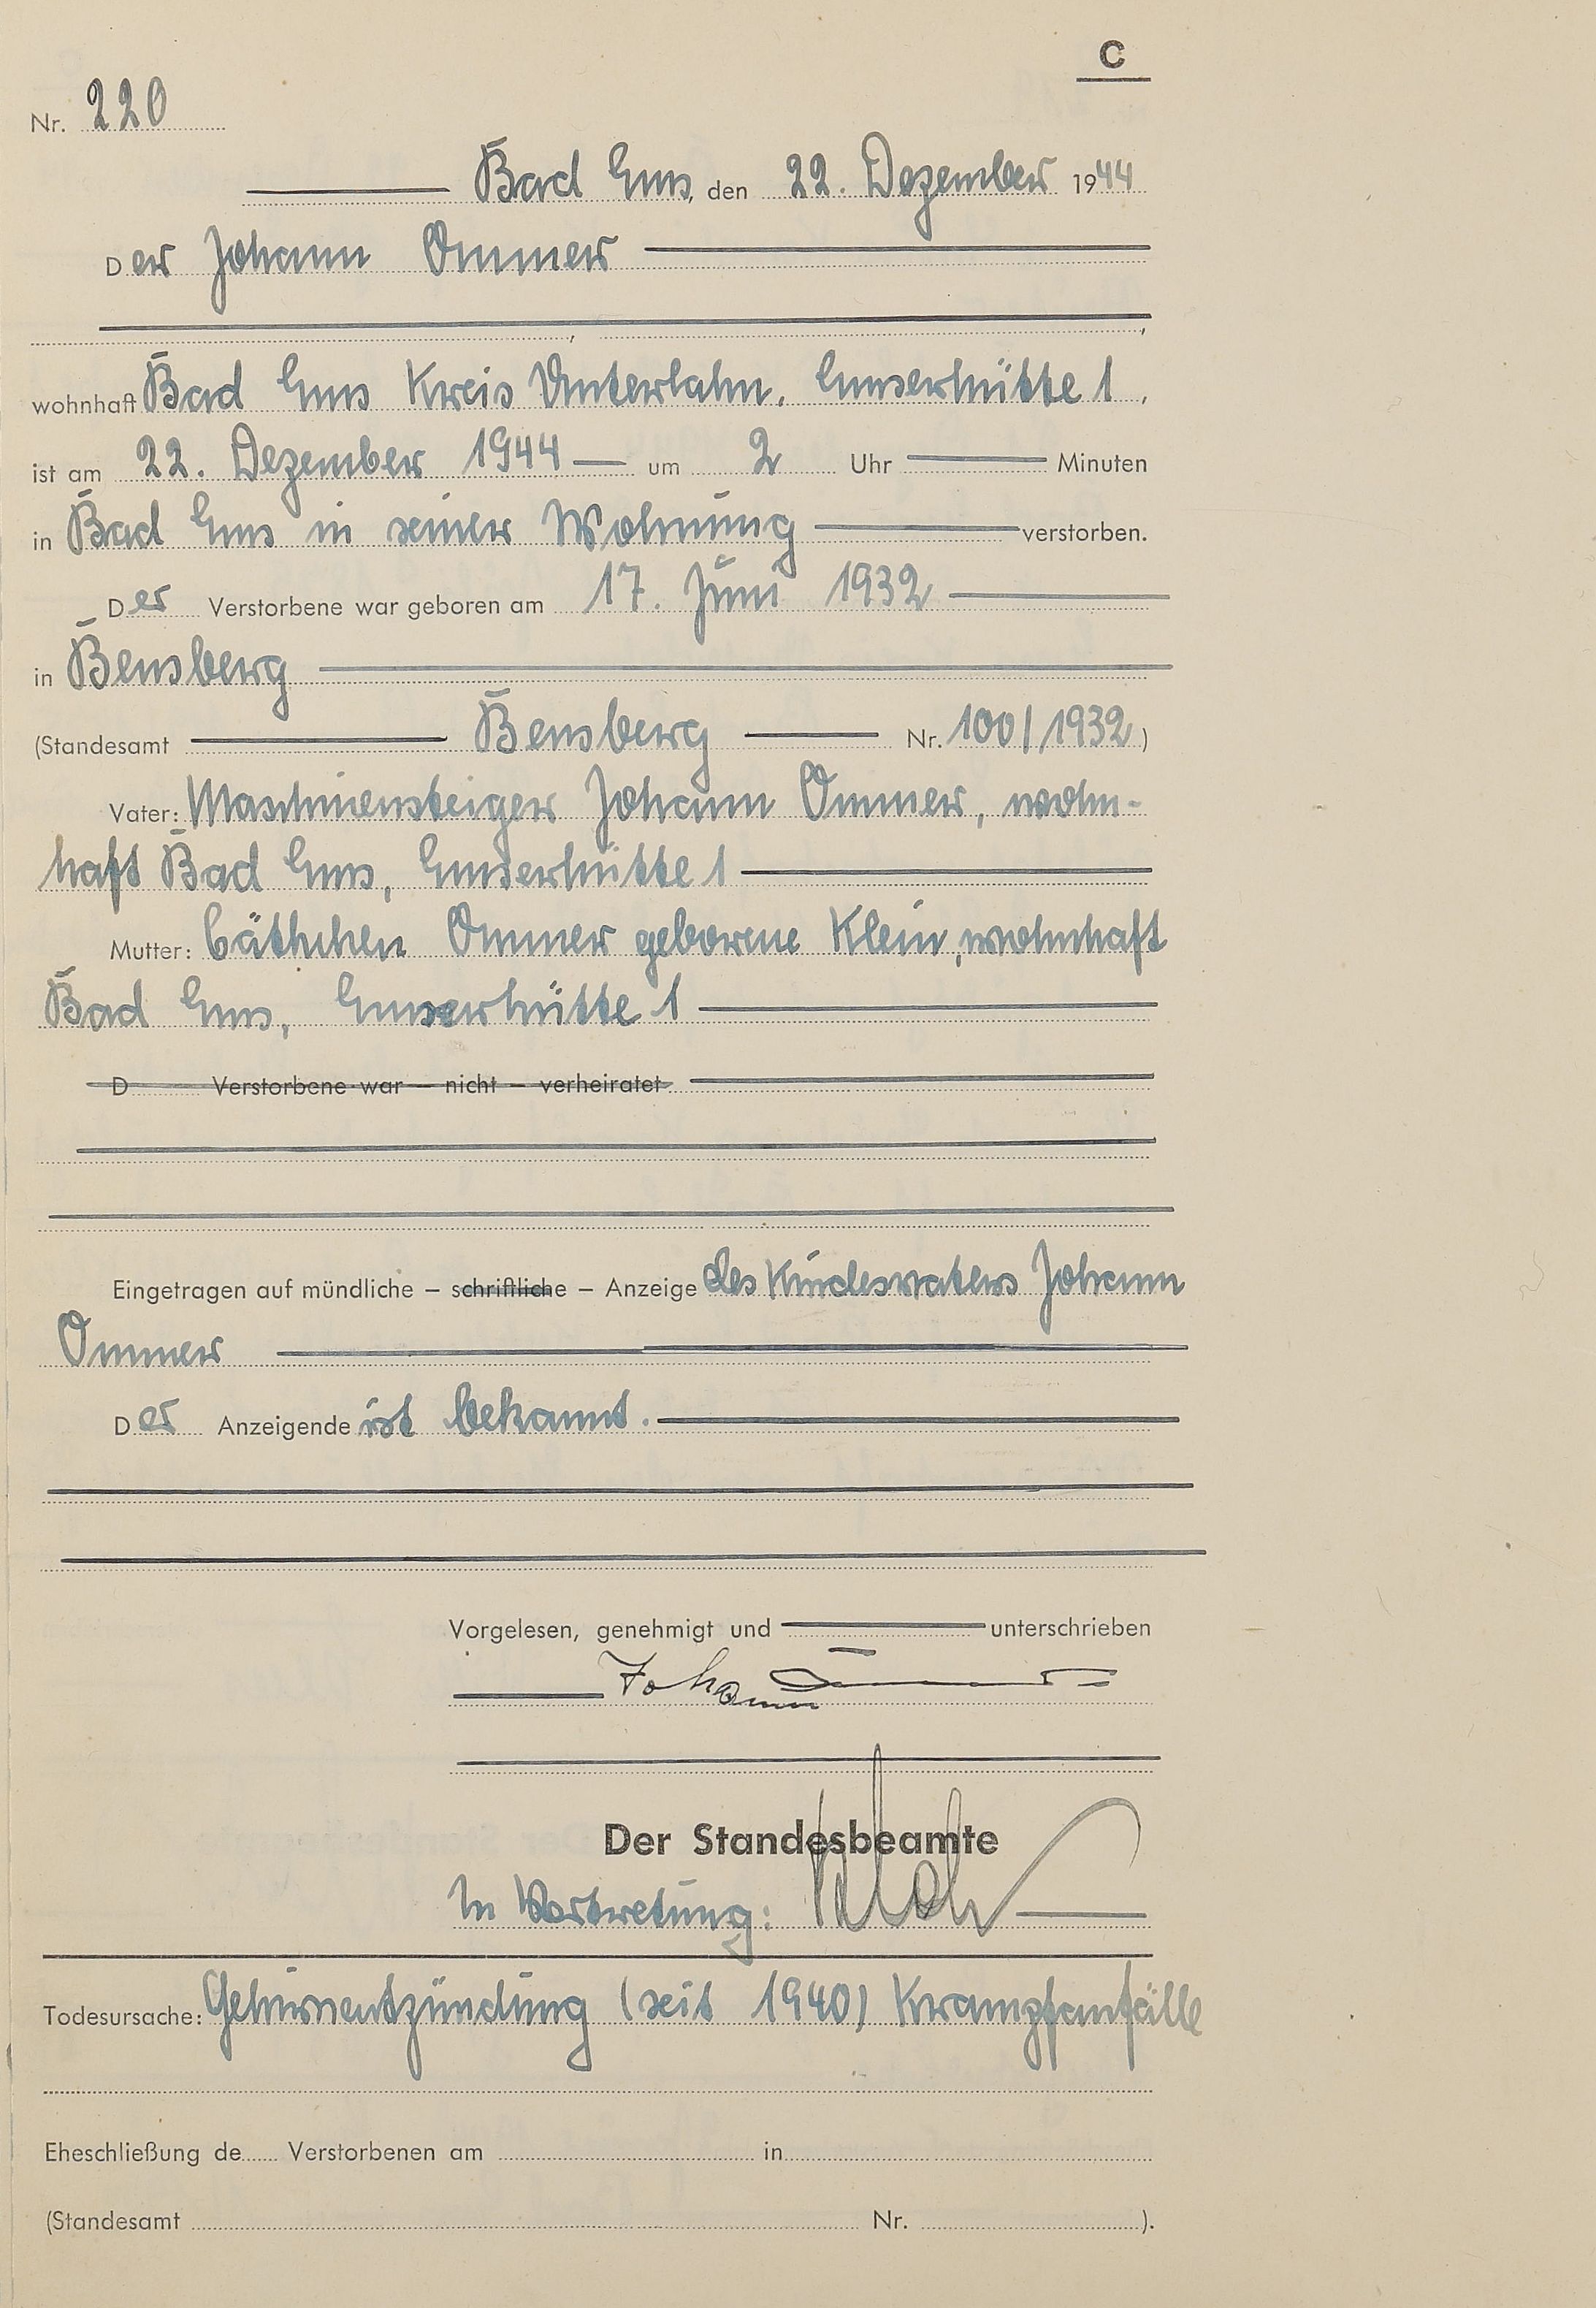 C
Nr. 220
Bad Ems, den 22. Dezember 1944
Der Johann Ommer
wohnhaft Bad Ems Kreis Unterlahn, Emserhütte 1,
ist am 22. Dezember 1944 um 2 Uhr Minuten
in Bad Ems in seiner Wohnung verstorben.
Der Verstorbene war geboren am 17. Juni 1932
in Bensberg
(Standesamt Bensberg Nr. 100/1932)
Vater: Maschinensteiger Johann Ommer, wohn-
haft Bad Ems, Emserhütte 1
Mutter: Cäthchen Ommer geborene Klein, wohnhaft
Bad Ems, Emserhütte 1
D Verstorbene war – nicht – verheiratet
Eingetragen auf mündliche – schriftliche – Anzeige des Kindesvaters Johann
Ommer
Der Anzeigende ist bekannt.
Vorgelesen, genehmigt und unterschrieben
Johann Ommer
Der Standesbeamte
In Vertretung:
Todesursache: Gehirnentzündung (seit 1940) Krampfanfälle
Eheschließung de Verstorbenen am in
(Standesamt Nr. ).